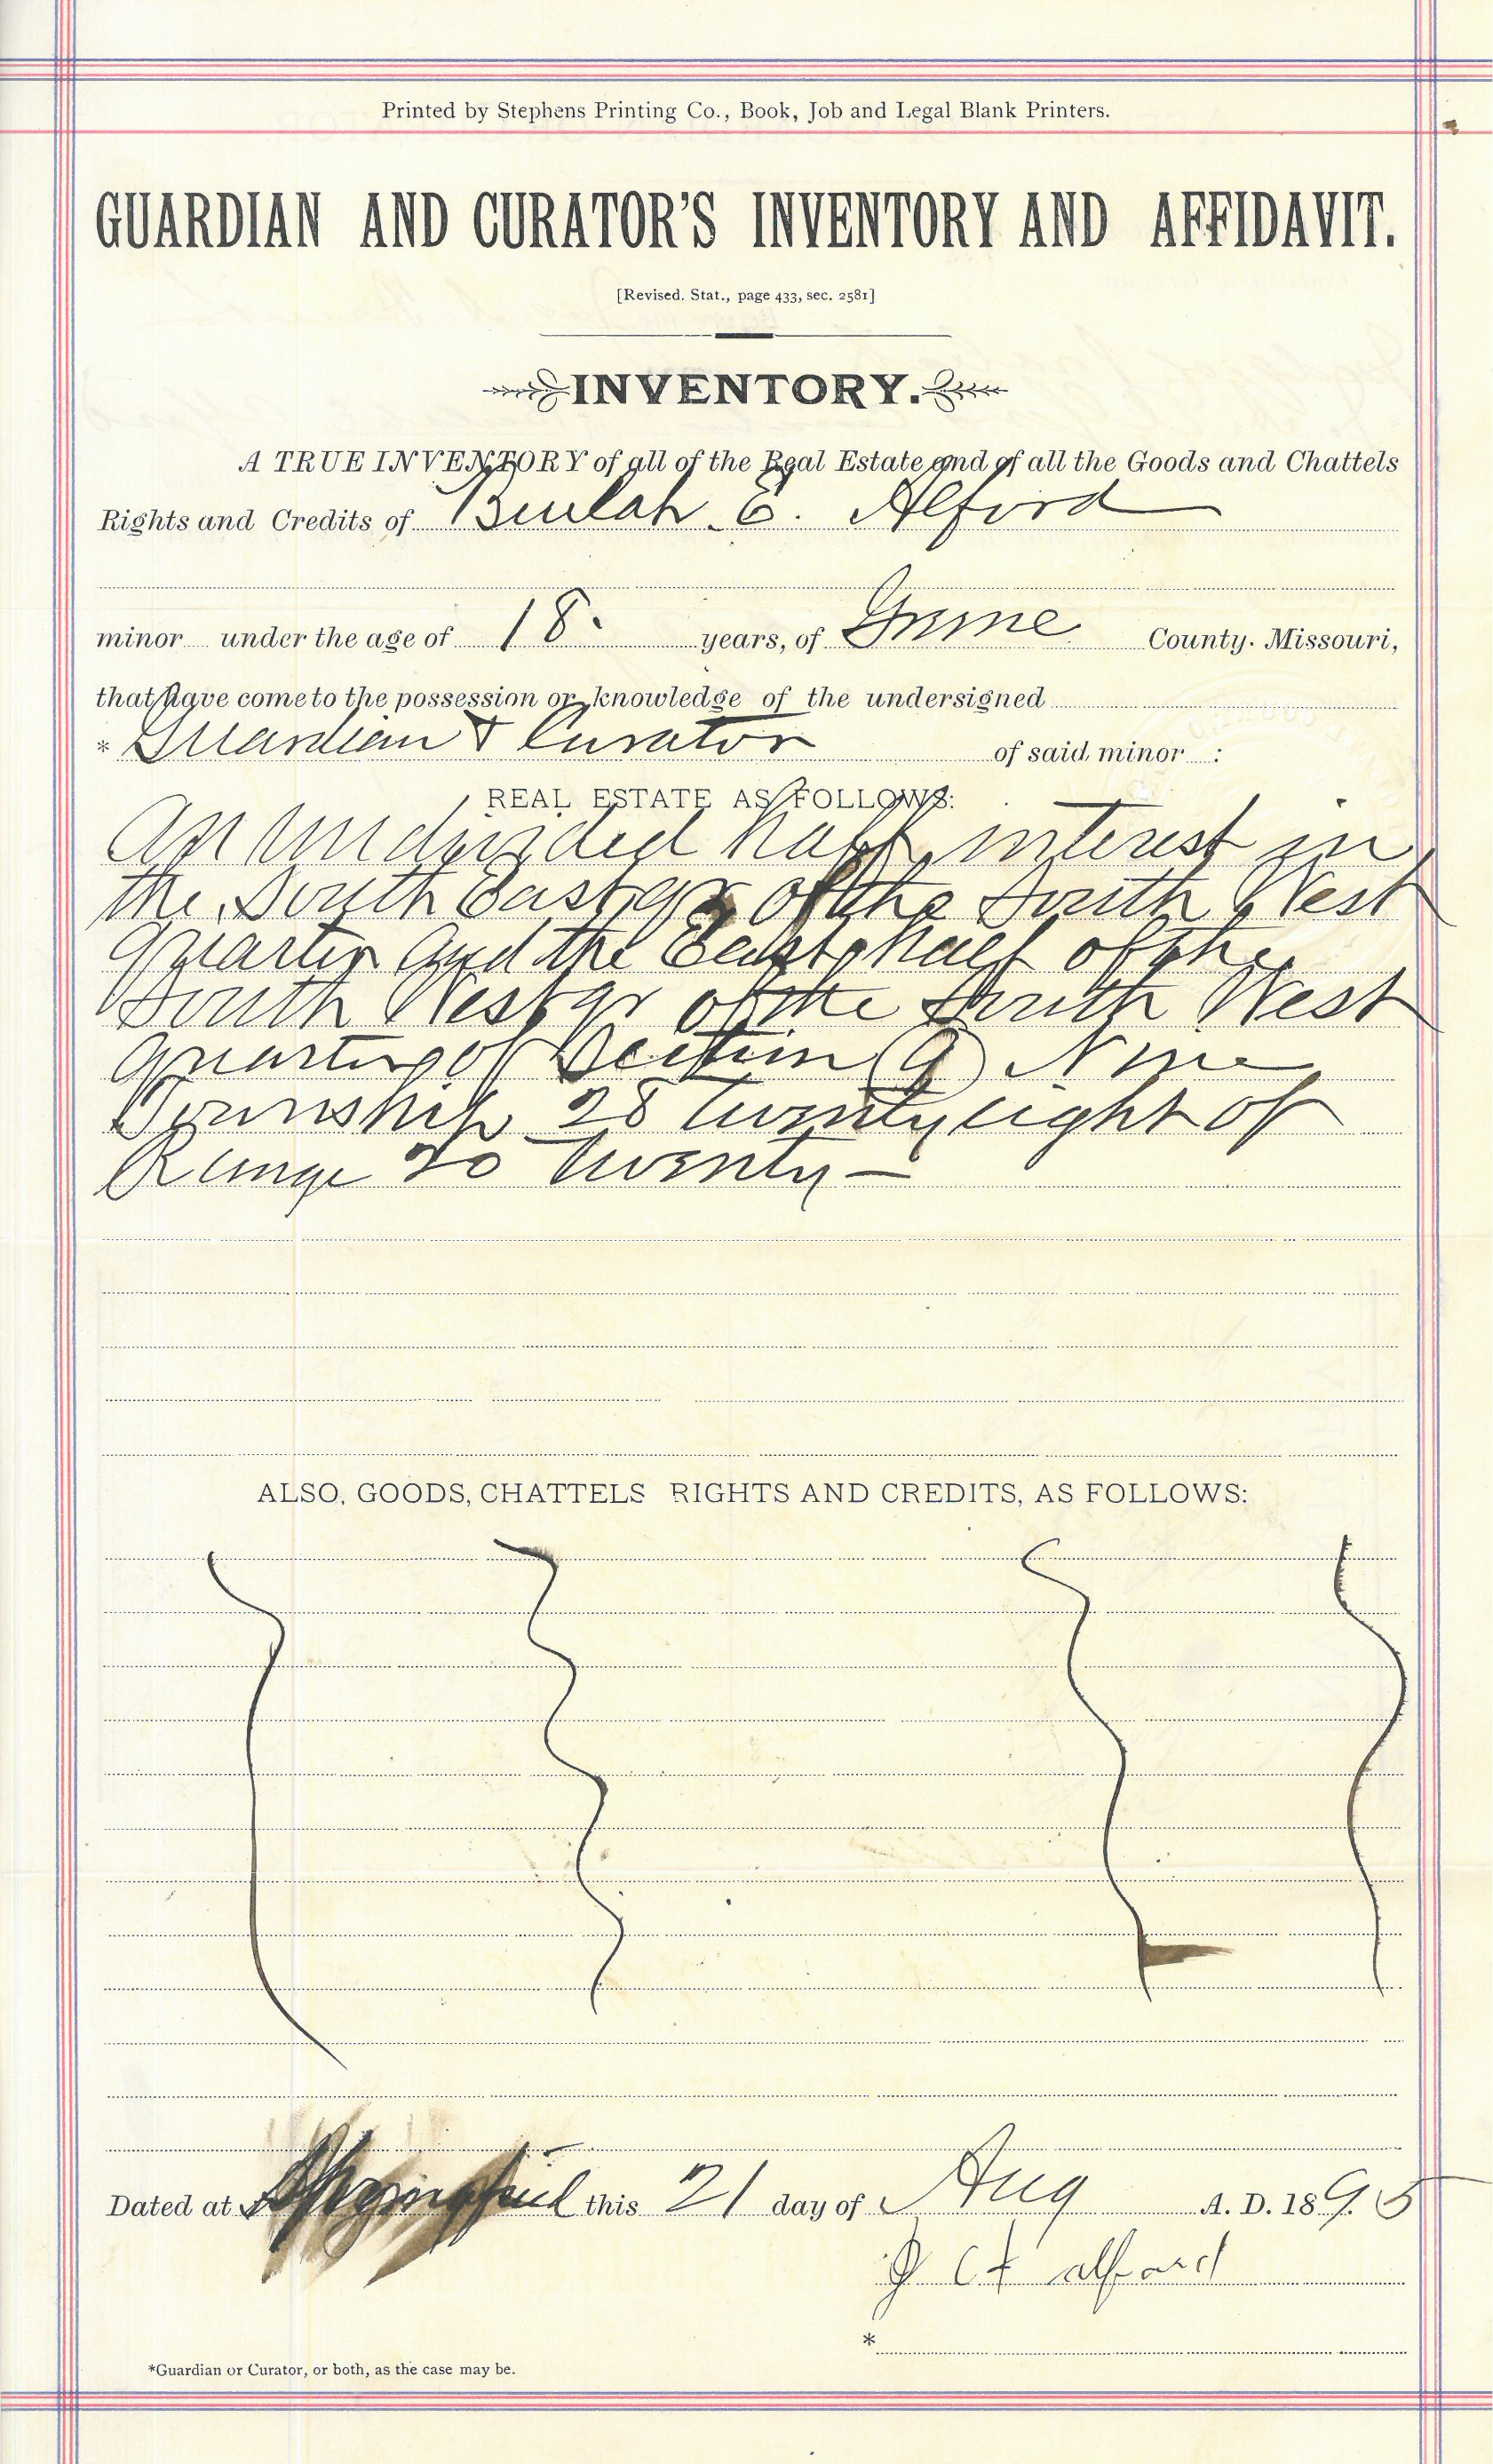 Printed by Stephens Printing Co., Book, Job and Legal Blank Printers.
GUARDIAN AND CURATOR'S INVENTORY AND AFFIDAVIT.
[Revised. Stat., page 433, sec. 2581]
INVENTORY.
A TRUE INVENTORY of all of the Real Estate and of all the Goods and Chattels
Rights and Credits of Beulah E. Alford
minor under the age of 18. years, of Greene County. Missouri,
that have come to the possession or knowledge of the undersigned
* Guardian & Curator of said minor :
REAL ESTATE AS FOLLOWS:
An Undivided half interest in
the South East qr of the South West
quarter and the East half of the
South West qr of the South West
quarter of Section (9) Nine
Township 28 twenty eight of
Range 20 twenty —
ALSO, GOODS, CHATTELS RIGHTS AND CREDITS, AS FOLLOWS:
Dated at Springfield this 21 day of Aug A. D. 1895
Alford
*
*Guardian or Curator, or both, as the case may be.